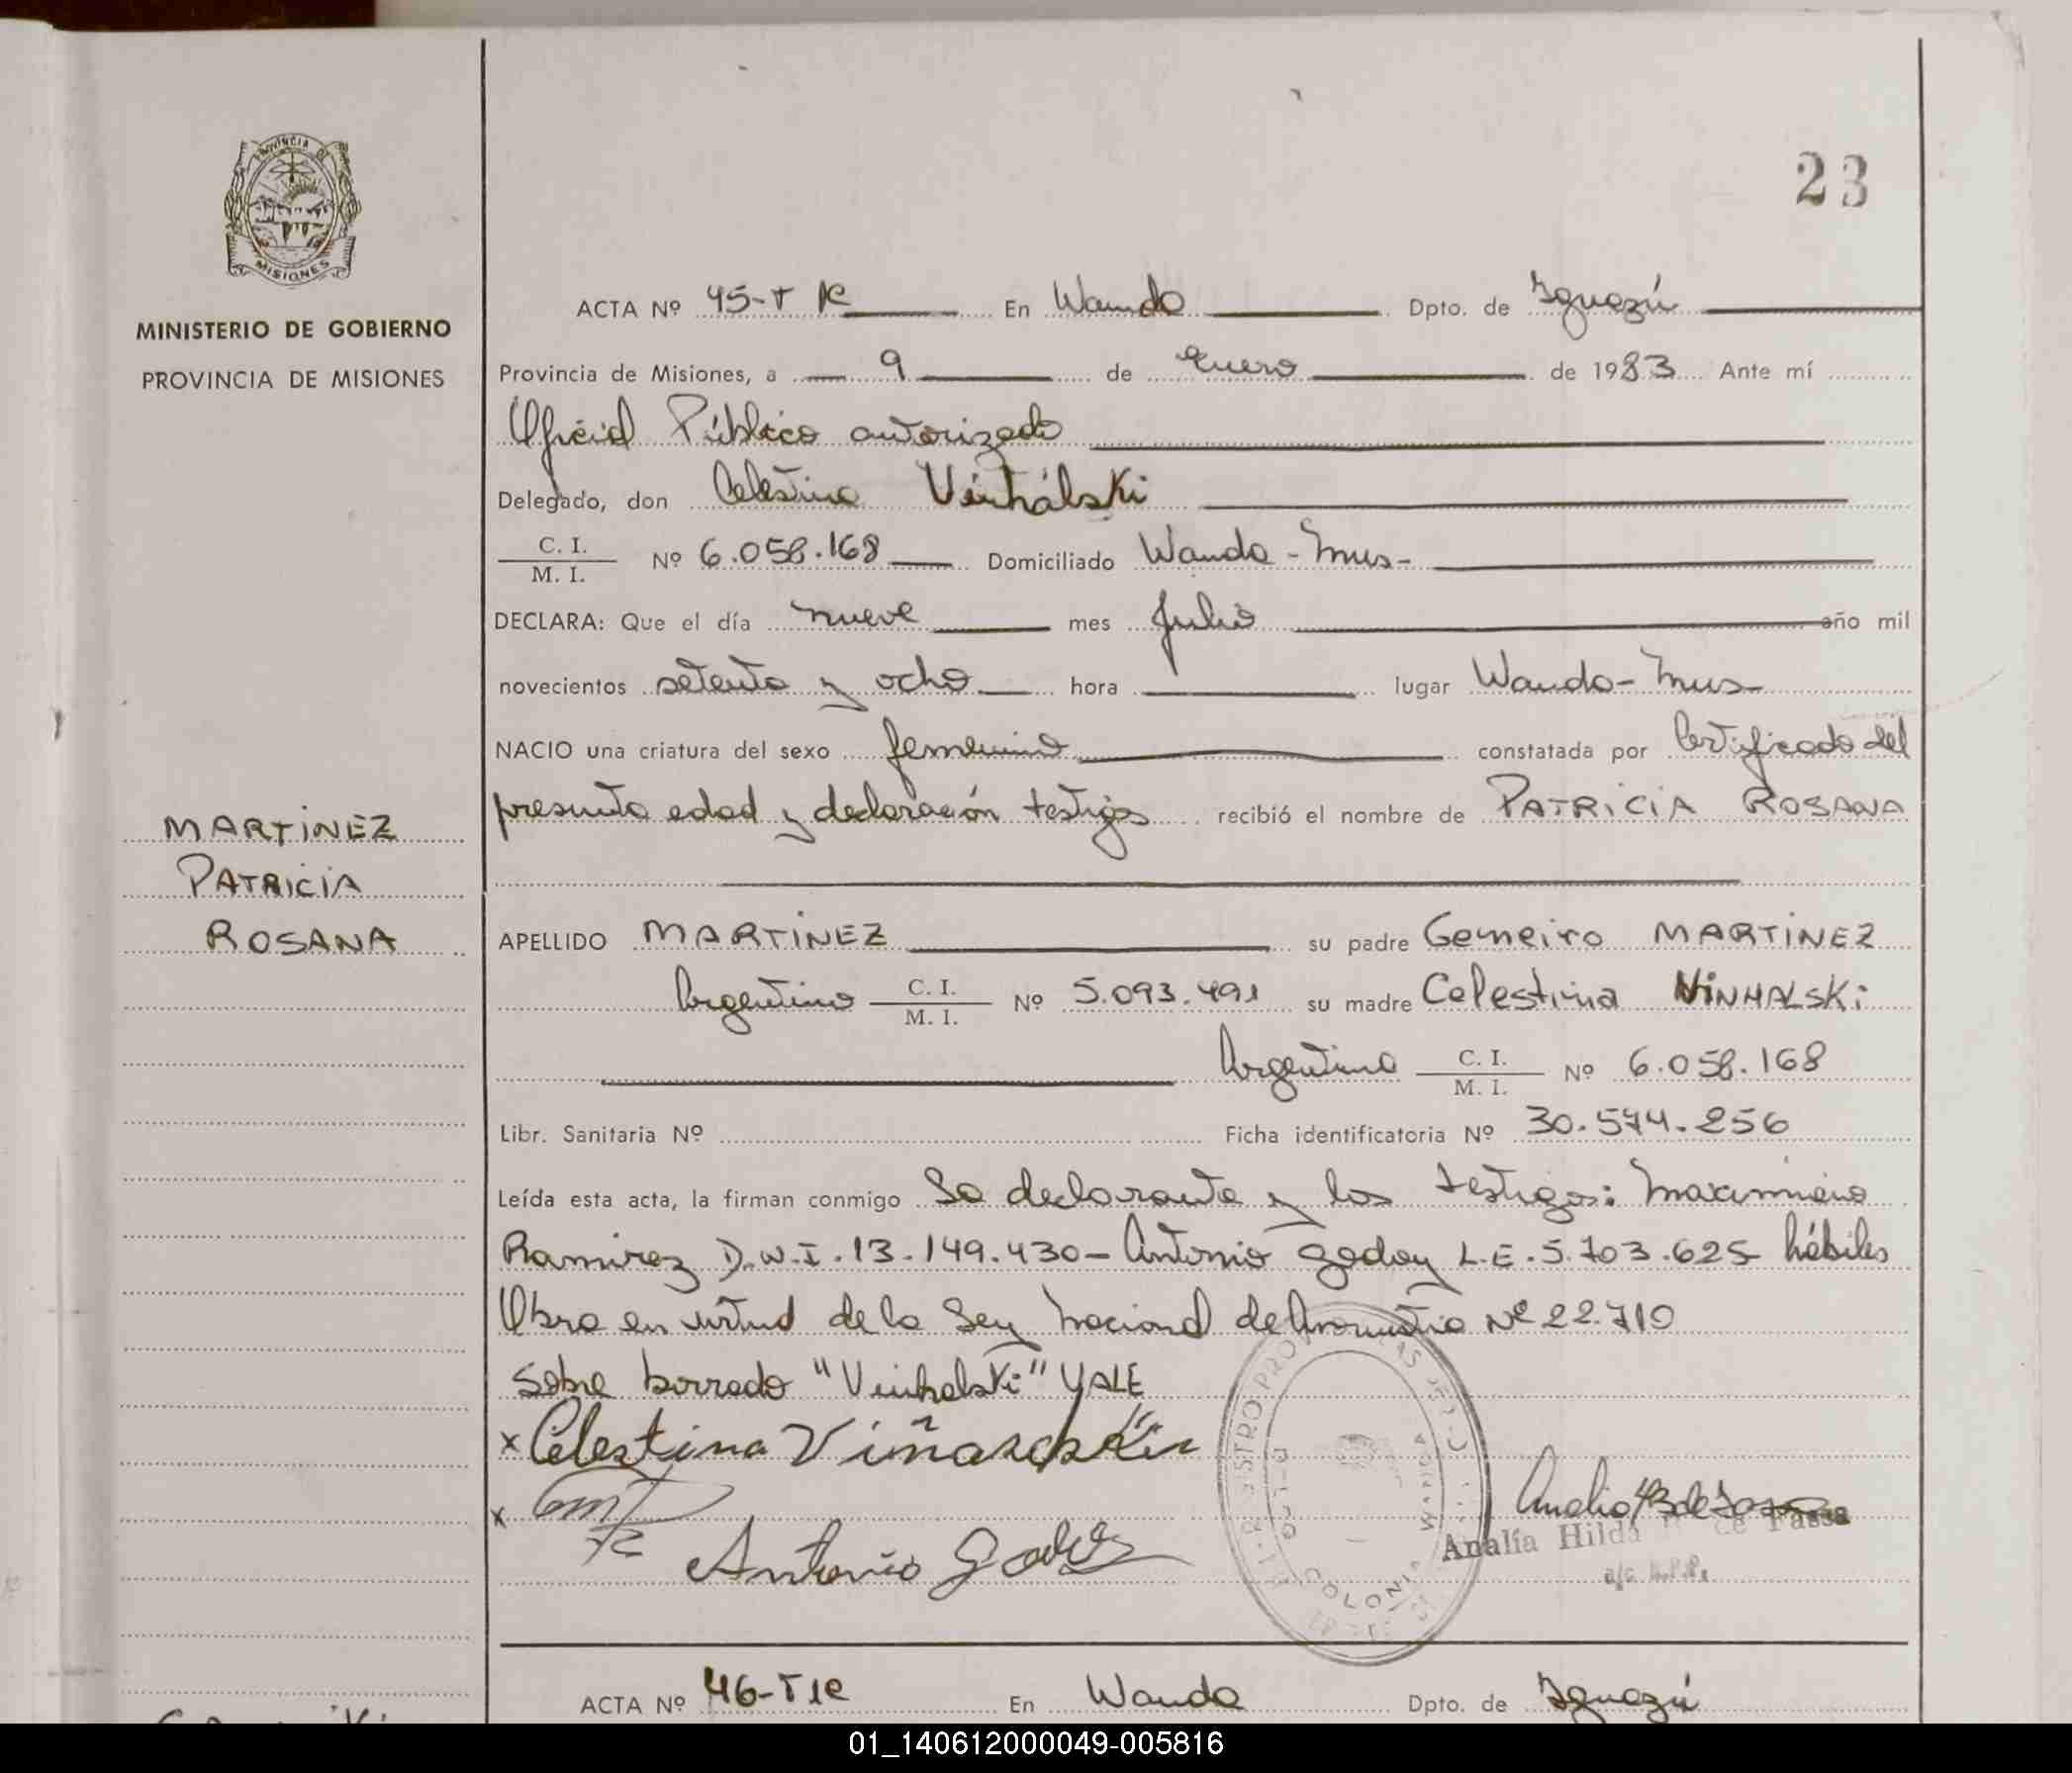 PROVINCIA DE
MISIONES
MINISTERIO DE GOBIERNO
PROVINCIA DE MISIONES
23
ACTA Nº 45-T R En Wanda Dpto. de Iguazú
Provincia de Misiones, a 9 de Enero de 1983 Ante mí
Oficial Público autorizado
Delegado, don Celestina Vinhálski
C. I. / M. I. Nº 6.058.168 Domiciliado Wanda - Mnes-
DECLARA: Que el día nueve mes Julio año mil
novecientos setenta y ocho hora lugar Wanda- Mnes-
NACIO una criatura del sexo femenino constatada por Certificado del
presunta edad y declaración testigos recibió el nombre de PATRICIA ROSANA
MARTINEZ
PATRICIA
ROSANA
APELLIDO MARTINEZ su padre Gemeiro MARTINEZ
Argentino C. I. / M. I. Nº 5.093.491 su madre Celestina VINHALSKi
Argentina C. I. / M. I. Nº 6.058.168
Libr. Sanitaria Nº Ficha identificatoria Nº 30.574.256
Leída esta acta, la firman conmigo La declarante y los testigos: Maximiano
Ramirez D.N.I. 13.149.430- Antonio Godoy L.E. 5.703.625 hábiles
Obra en virtud de la Ley Nacional de Amnistia Nº 22.710
Sobre borrado "Vinhalski" VALE
x Celestina
x
Antonio Godoy
COLONIA WANDA
Analía Hilda de Fassa
ACTA Nº 46-T R En Wanda Dpto. de Iguazú
01_140612000049-005816